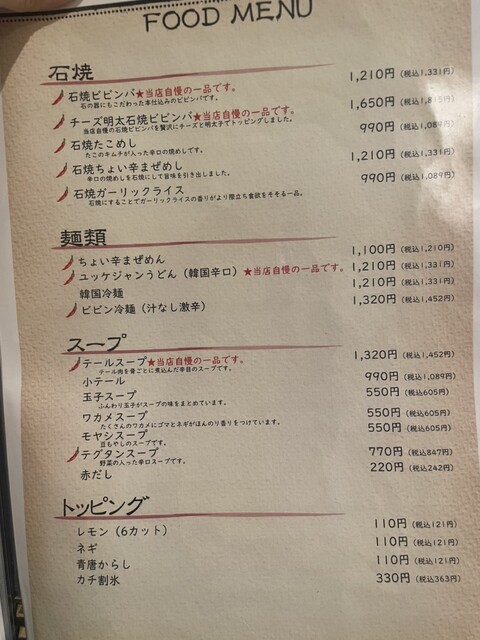 FOOD MENU
石焼
石焼ビビンバ★当店自慢の一品です。 1,210円(税込1,331円)
石の器にもこだわった本仕込みのビビンバです。
チーズ明太石焼ビビンバ★当店自慢の一品です。 1,650円(税込1,815円)
当店自慢の石焼ビビンバを贅沢にチーズと明太子でトッピングしました。
石焼たこめし 990円(税込1,089円)
たこのキムチが入った辛口の焼めしです。
石焼ちょい辛まぜめし 1,210円(税込1,331円)
辛口の焼めしを石焼にして旨味を引き出しました。
石焼ガーリックライス 990円(税込1,089円)
石焼にすることでガーリックライスの香りがより際立ち食欲をそそる一品。
麺類
ちょい辛まぜめん 1,100円(税込1,210円)
ユッケジャンうどん(韓国辛口)★当店自慢の一品です。 1,210円(税込1,331円)
韓国冷麺 1,210円(税込1,331円)
ビビン冷麺(汁なし激辛) 1,320円(税込1,452円)
スープ
テールスープ★当店自慢の一品です。 1,320円(税込1,452円)
テール肉を骨ごとに煮込んだ辛目のスープです。
小テール 990円(税込1,089円)
玉子スープ 550円(税込605円)
ふんわり玉子がスープの味をまとめています。
ワカメスープ 550円(税込605円)
たくさんのワカメにゴマとネギがほんのり香りをつけています。
モヤシスープ 550円(税込605円)
豆もやしのスープです。
テグタンスープ 770円(税込847円)
野菜の入った辛口スープです。
赤だし 220円(税込242円)
トッピング
レモン(6カット) 110円(税込121円)
ネギ 110円(税込121円)
青唐からし 110円(税込121円)
カチ割氷 330円(税込363円)